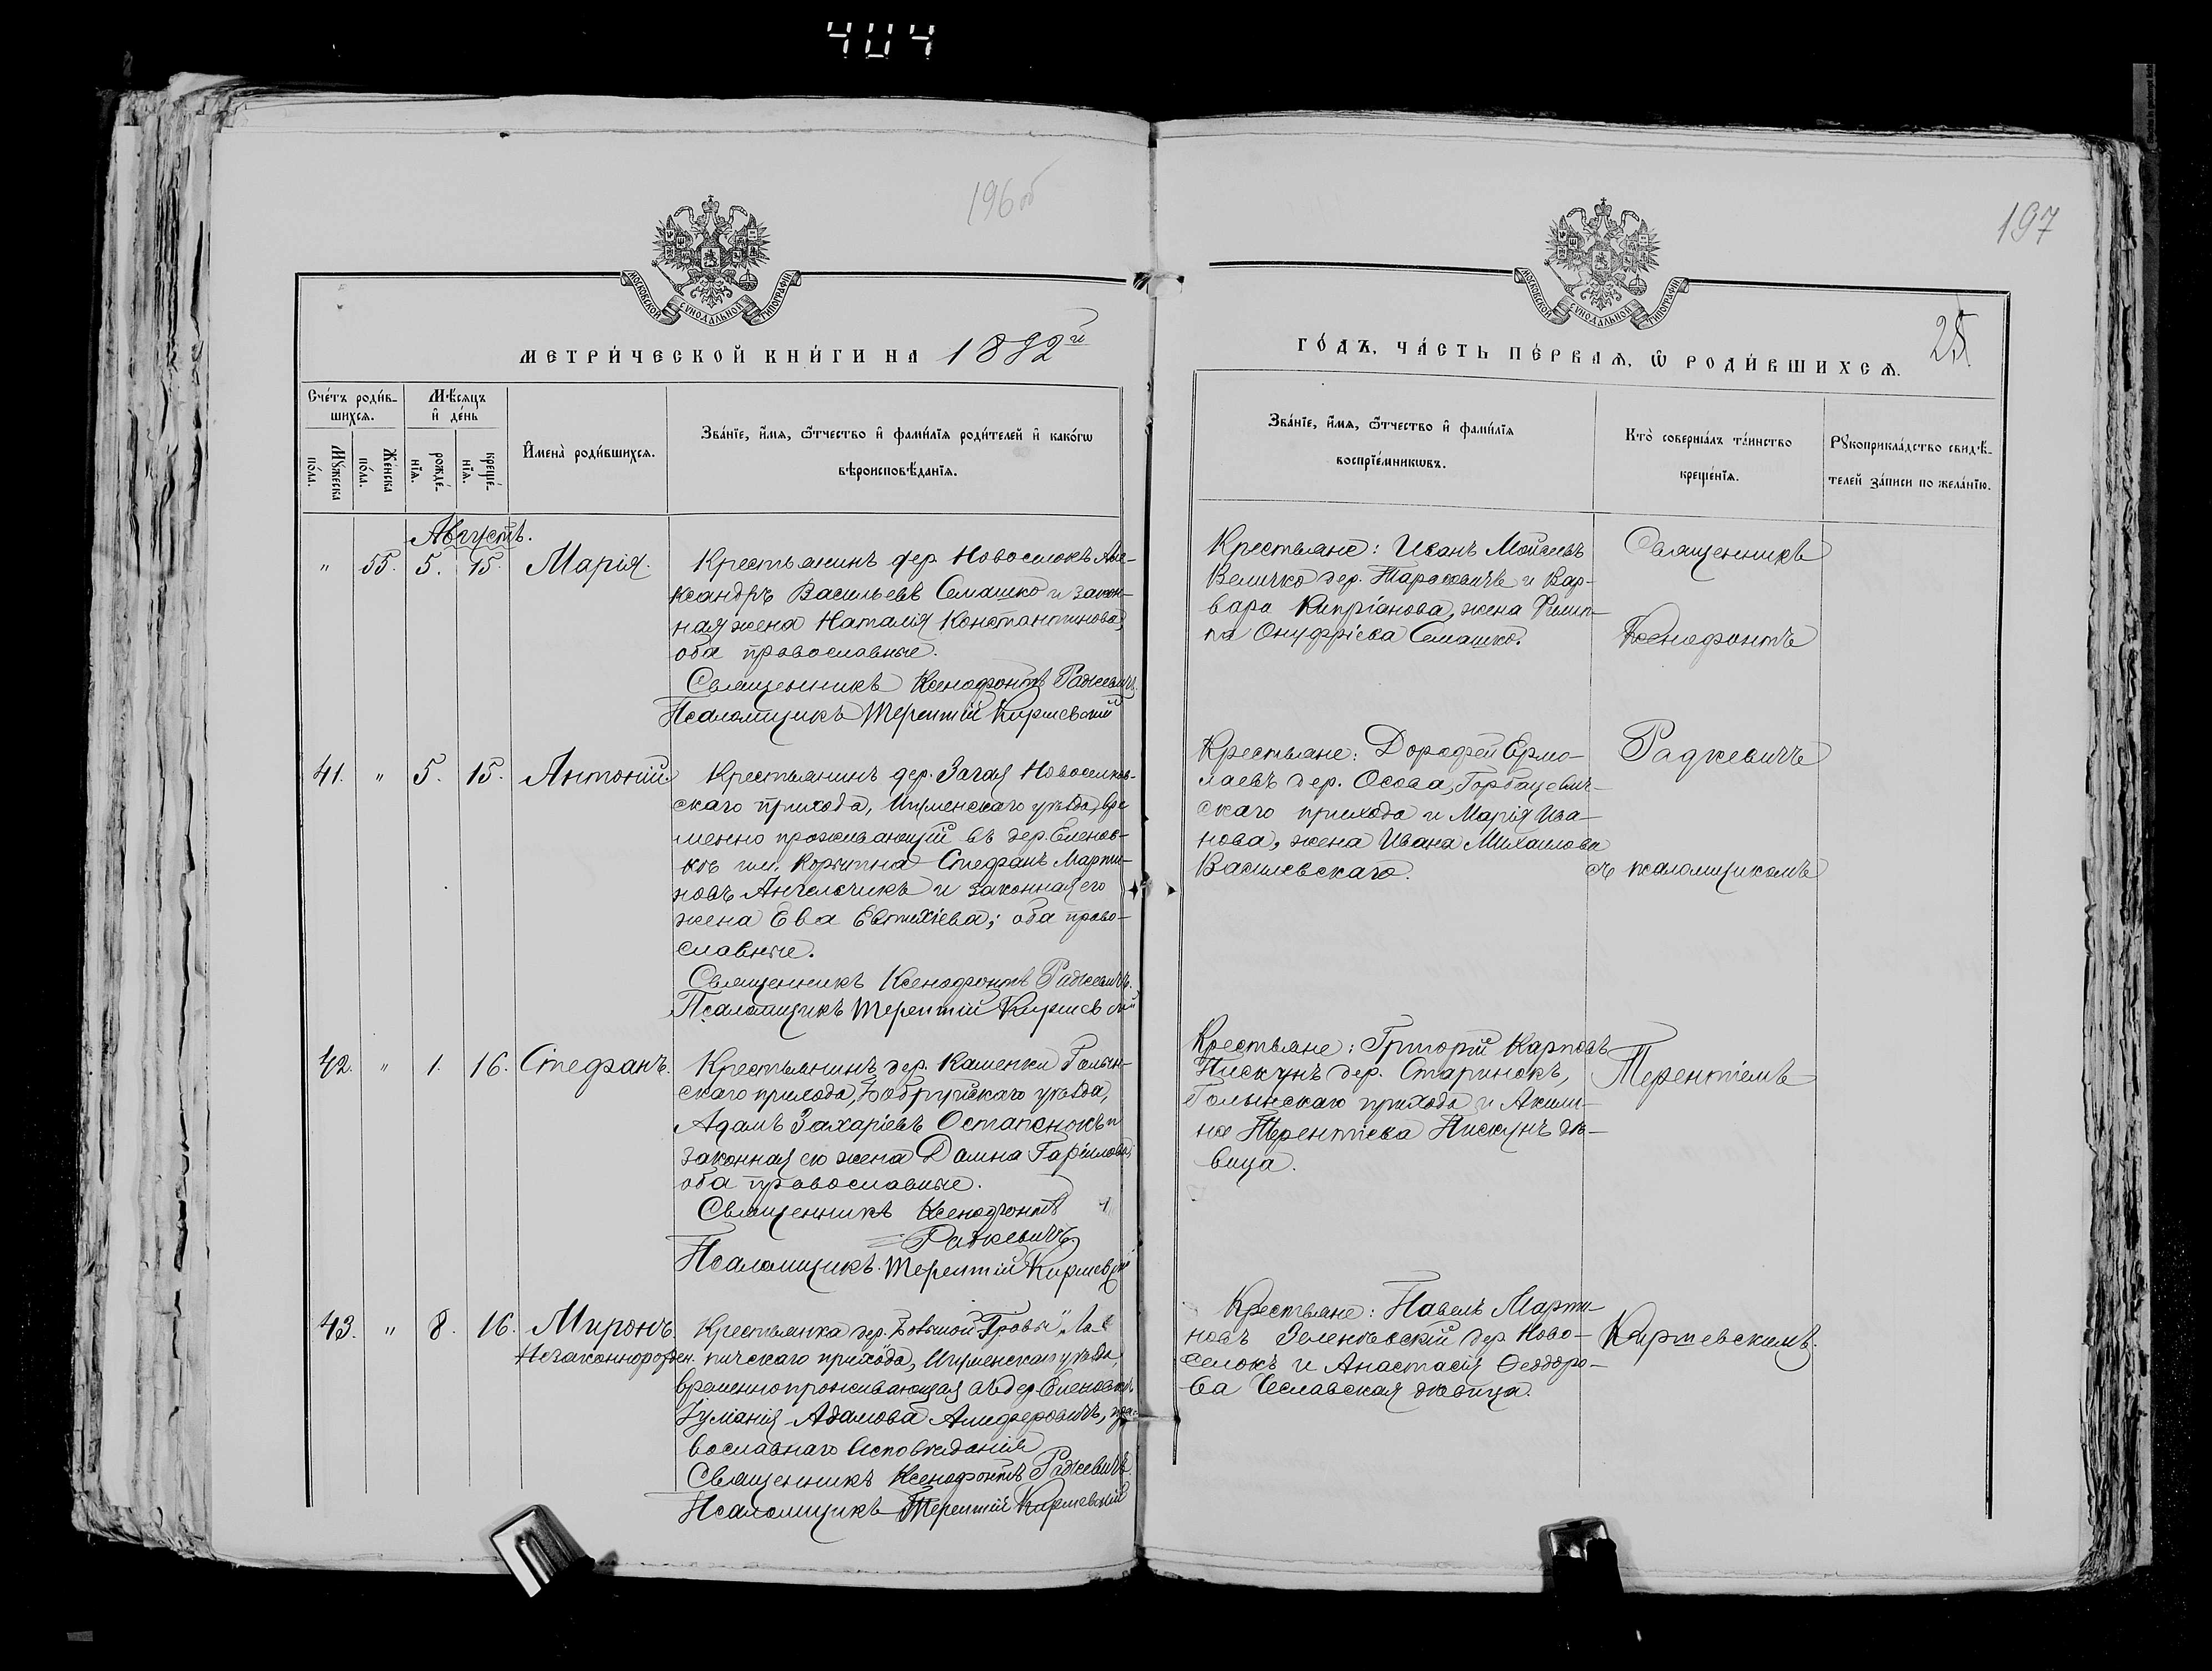 404
196об
197
МОСКОВСКОЙ СѴНОДАЛЬНОЙ ТИПОГРАФІИ
МОСКОВСКОЙ СѴНОДАЛЬНОЙ ТИПОГРАФІИ
25
МЕТРИ́ЧЕСКОЙ КНИ́ГИ НА 1892й
ГО́ДЪ, ЧА́СТЬ ПЕ́РВАѦ, Ѡ҆ РОДИ́ВШИХСѦ.
Сче́тъ роди́в-
шихсѧ.
Мꙋ́жеска
по́ла.
Же́нска
по́ла.
Мѣ́сѧцъ
и҆ де́нь
рожде́-
нїѧ.
креще́-
нїѧ.
И҆мена̀ роди́вшихсѧ.
Зва́нїе, и҆́мѧ, ѻ҆́тчество и҆ фами́лїѧ роди́телей и҆ како́гѡ
вѣроисповѣ́данїѧ.
Зва́нїе, и҆́мѧ, ѻ҆́тчество и҆ фами́лїѧ
воспрїе́мникѡвъ.
Кто̀ соверша́лъ та́инство
креще́нїѧ.
Рꙋкоприкла́дство свидѣ́-
телей за́писи по жела́нїю.
Августъ.
" 55. 5. 15. Марія.
Крестьянинъ дер. Новоселокъ Але-
ксандръ Васильевъ Семашко и закон-
ная жена Наталія Константинова,
оба православные.
Священникъ Ксенофонтъ Радкевичъ.
Псаломщикъ Терентій Киршевскій
Крестьяне: Иванъ Моисеевъ
Величко дер. Тарасовичъ и Вар-
вара Кипріанова, жена Филип-
па Онуфріева Семашко.
Священникъ
Ксенофонтъ
41. " 5. 15. Антоній.
Крестьянинъ дер. Загая Новоселков-
скаго прихода, Игуменскаго уѣзда, вре
менно проживающій въ дер. Еленов-
кѣ им. Корытна Стефанъ Марти-
новъ Ангельчикъ и законная его
жена Ева Евтихіева; оба право-
славные.
Священникъ Ксенофонтъ Радкевичъ.
Псаломщикъ Терентій Киршевскій
Крестьяне: Дорофей Ермо-
лаевъ дер. Осова, Горбацевич-
скаго прихода и Марія Ива-
нова, жена Ивана Михаилова
Василевскаго.
Радкевичъ
съ псаломщикомъ
42. " 1. 16. Стефанъ.
Крестьянинъ дер. Каменки Голын-
скаго прихода, Бобруйскаго уѣзда,
Адамъ Захаріевъ Остапенокъ и
законная его жена Домна Гаріилова,
оба православные.
Священникъ Ксенофонтъ
Радкевичъ.
Псаломщикъ Терентій Киршевскій
Крестьяне: Григорій Карповъ
Пискунъ дер. Старинокъ,
Голынскаго прихода и Акили-
на Терентіева Пискунъ дѣ-
вица.
Терентіемъ
43. " 8. 16. Миронъ.
Незаконнорожден.
Крестьянка дер. Большой Гровы Ла-
пичскаго прихода, Игуменскаго уѣзда,
временнопроживающая въ дер. Еленовкѣ
Іуліанія Адамова, пра-
вославнаго исповѣданія
Священникъ Ксенофонтъ Радкевичъ.
Псаломщикъ Терентій Киршевскій
Крестьяне: Павелъ Марти-
новъ Зеленѣвскій дер. Ново-
селокъ и Анастасія Ѳеодоро-
ва Чеславская дѣвица.
Киршевскимъ.